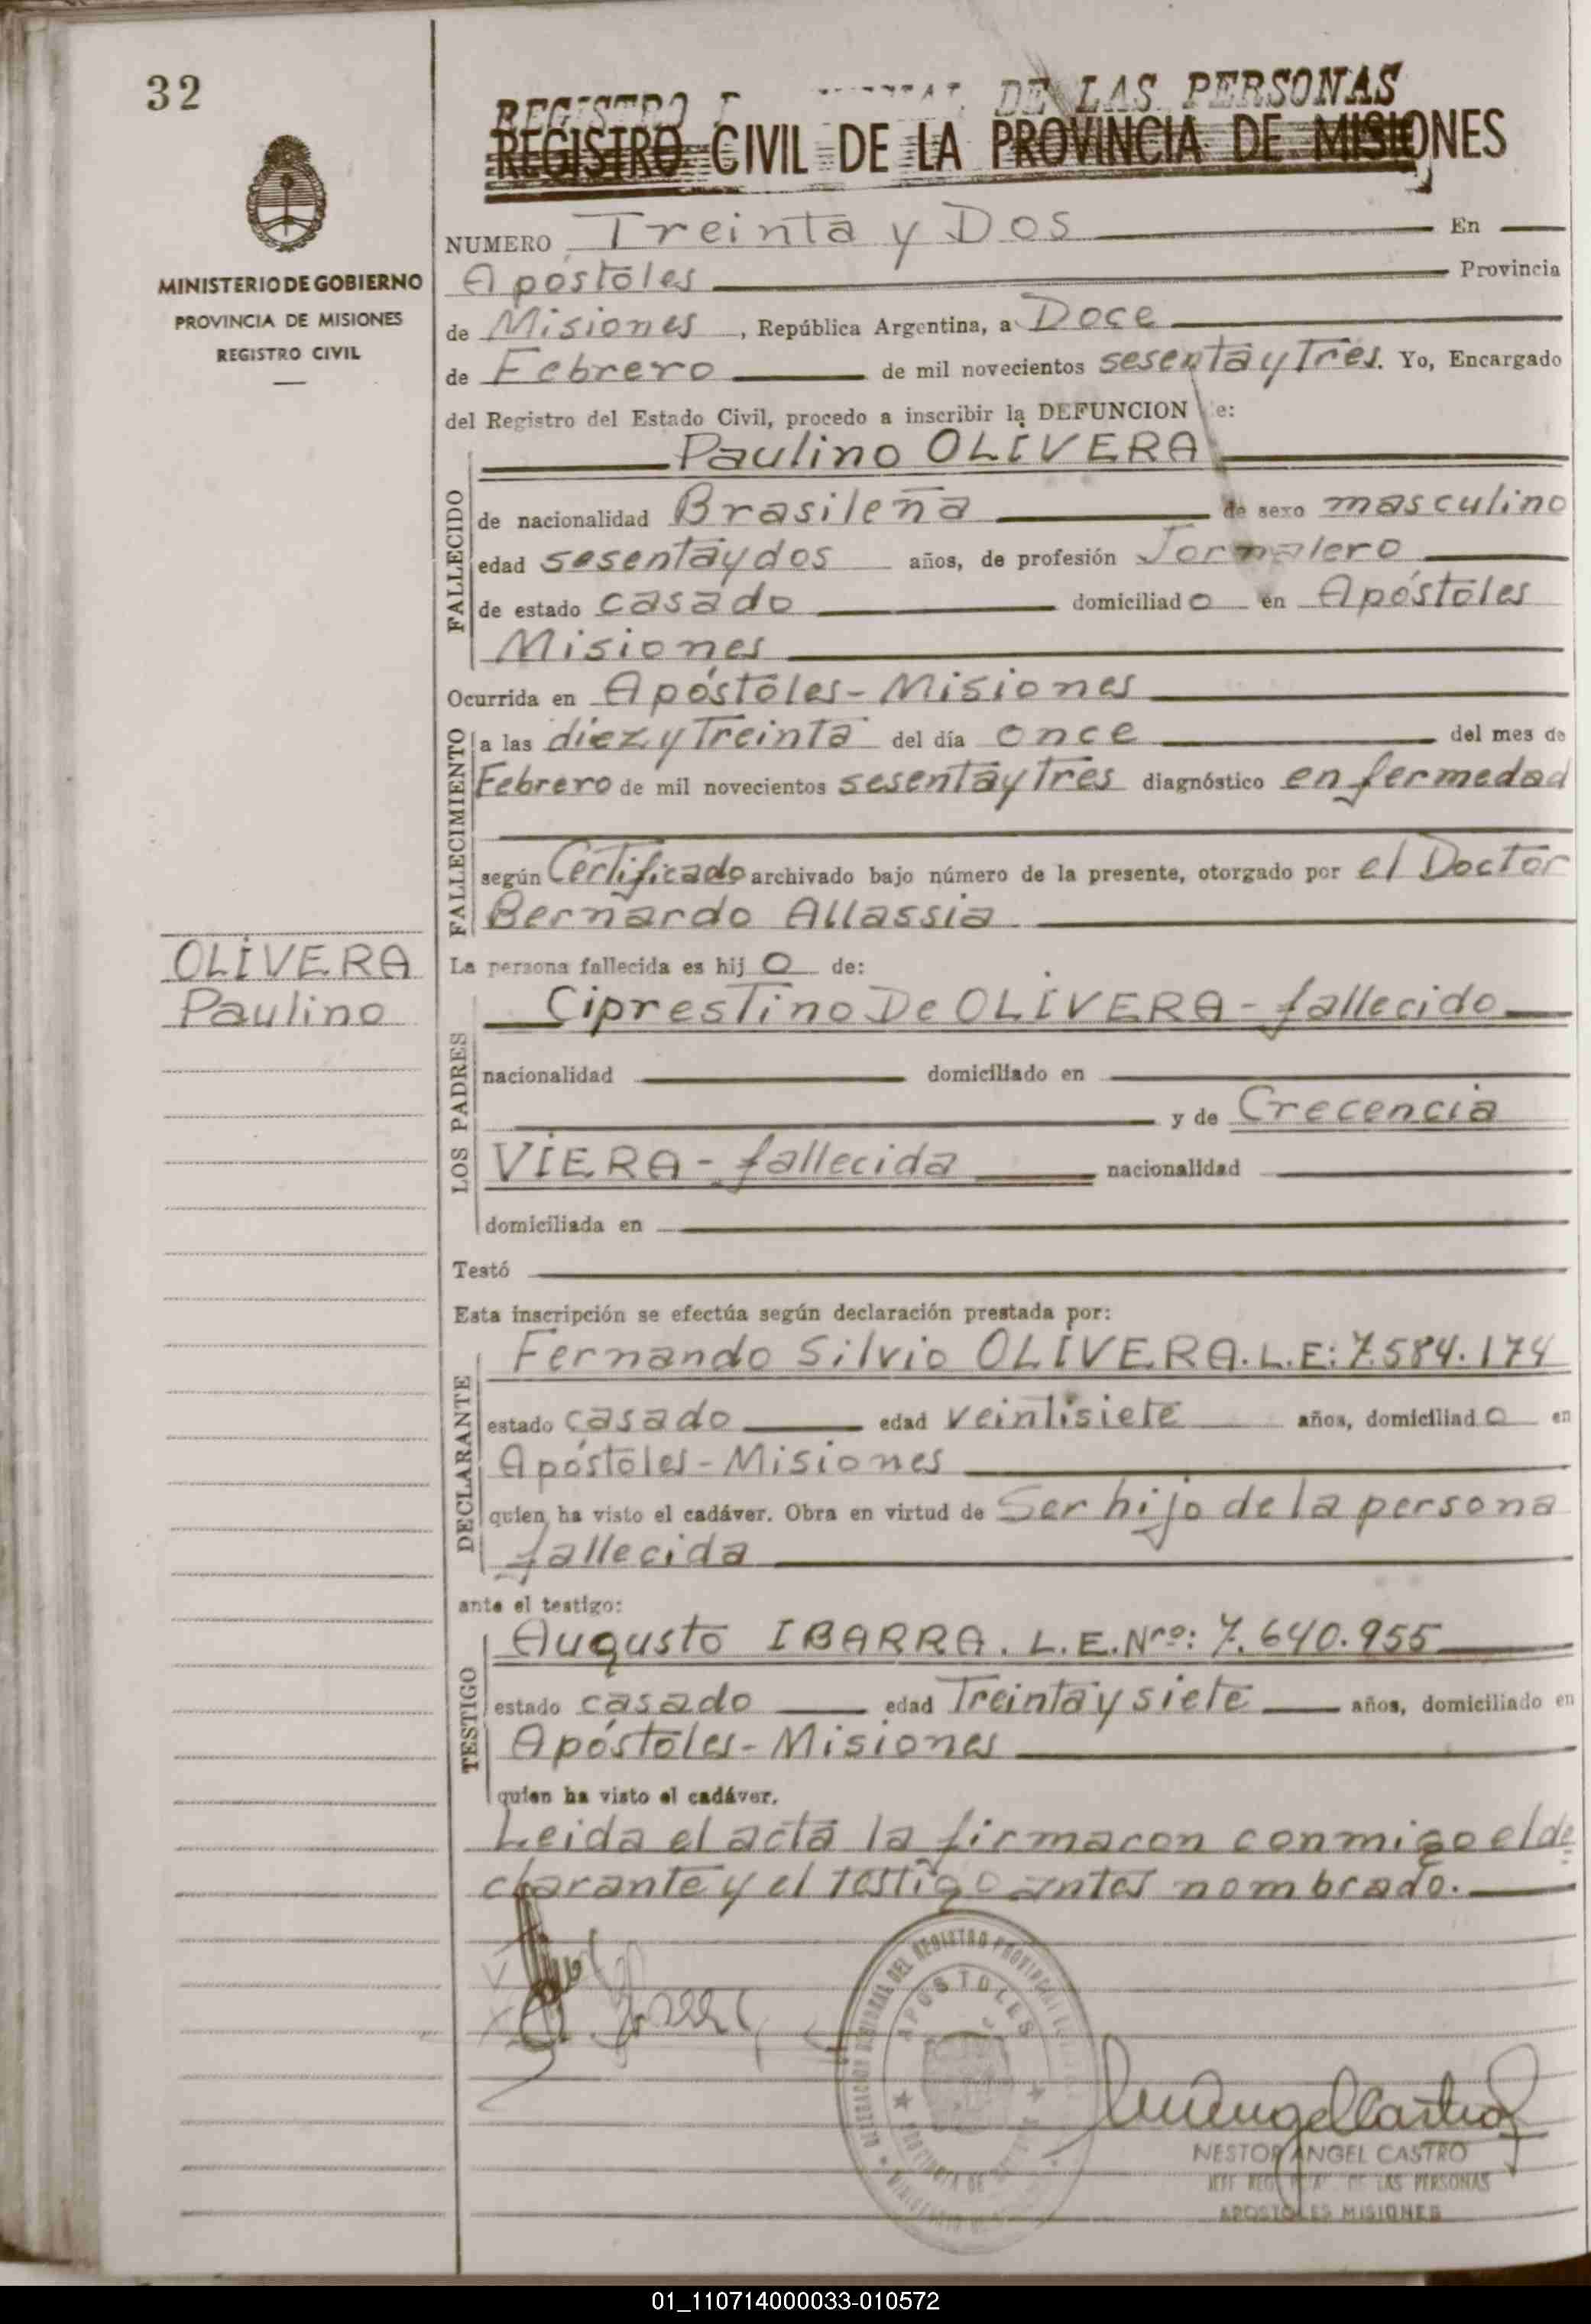 32
REGISTRO DE LAS PERSONAS
REGISTRO CIVIL DE LA PROVINCIA DE MISIONES
MINISTERIO DE GOBIERNO
PROVINCIA DE MISIONES
REGISTRO CIVIL
NUMERO Treinta y Dos En
Apóstoles Provincia
de Misiones, República Argentina, a Doce
de Febrero de mil novecientos sesenta y Tres. Yo, Encargado
del Registro del Estado Civil, procedo a inscribir la DEFUNCION de:
Paulino OLIVERA
FALLECIDO
de nacionalidad Brasileña de sexo masculino
edad sesenta y dos años, de profesión Jornalero
de estado casado domiciliado en Apóstoles
Misiones
Ocurrida en Apóstoles - Misiones
FALLECIMIENTO
a las diez y Treinta del día once del mes de
Febrero de mil novecientos sesenta y Tres diagnóstico enfermedad
según Certificado archivado bajo número de la presente, otorgado por el Doctor
Bernardo Allassia
OLIVERA
Paulino
La persona fallecida es hijo de:
LOS PADRES
Ciprestino De OLIVERA - fallecido
nacionalidad domiciliado en
y de Crecencia
VIERA - fallecida nacionalidad
domiciliada en
Testó
Esta inscripción se efectúa según declaración prestada por:
DECLARANTE
Fernando Silvio OLIVERA. L.E: 7.584.174
estado casado edad veintisiete años, domiciliado en
Apóstoles - Misiones
quien ha visto el cadáver. Obra en virtud de Ser hijo de la persona
fallecida
ante el testigo:
TESTIGO
Augusto IBARRA. L.E.Nro: 7.640.955
estado casado edad Treinta y siete años, domiciliado en
Apóstoles - Misiones
quien ha visto el cadáver.
Leida el acta la firmaron conmigo el de
clarante y el testigo antes nombrado.
DEL REGISTRO PROVINCIAL
APOSTOLES
PROVINCIA DE
NESTOR ANGEL CASTRO
JEFE REG. DE LAS PERSONAS
APOSTOLES MISIONES
01_110714000033-010572